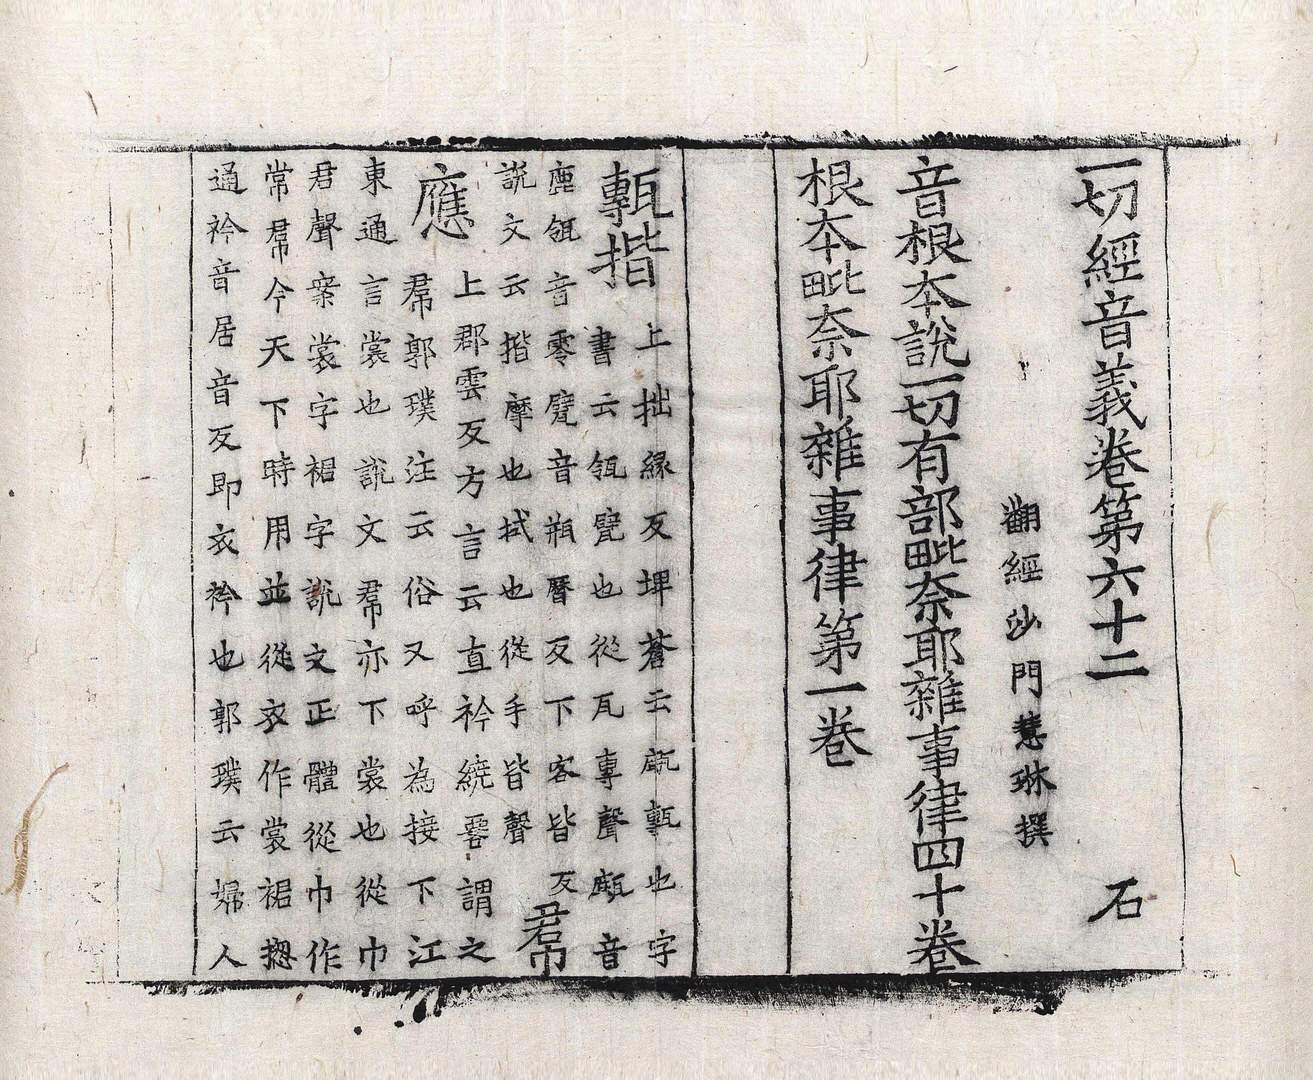 一切經音義卷第六十二　石
翻經沙門慧琳撰
音根本說一切有部毗奈耶雜事律四十卷
根本毗奈耶雜事律第一卷
甎揩
上拙緣反埤蒼云甎也字
書云瓴甓也從瓦專聲音
鹿瓴音零甓音瓶曆反下客皆反
說文云揩摩也拭也從手皆聲
帬
應
上郡雲反方言云直衿繞謂之
帬郭璞注云俗又呼為接下江
東通言裳也說文帬亦下裳也從巾
君聲案裳字裙字說文正體從巾作
常帬今天下時用並從衣作裳裙揔
通衿音居音反即衣衿也郭璞云婦人